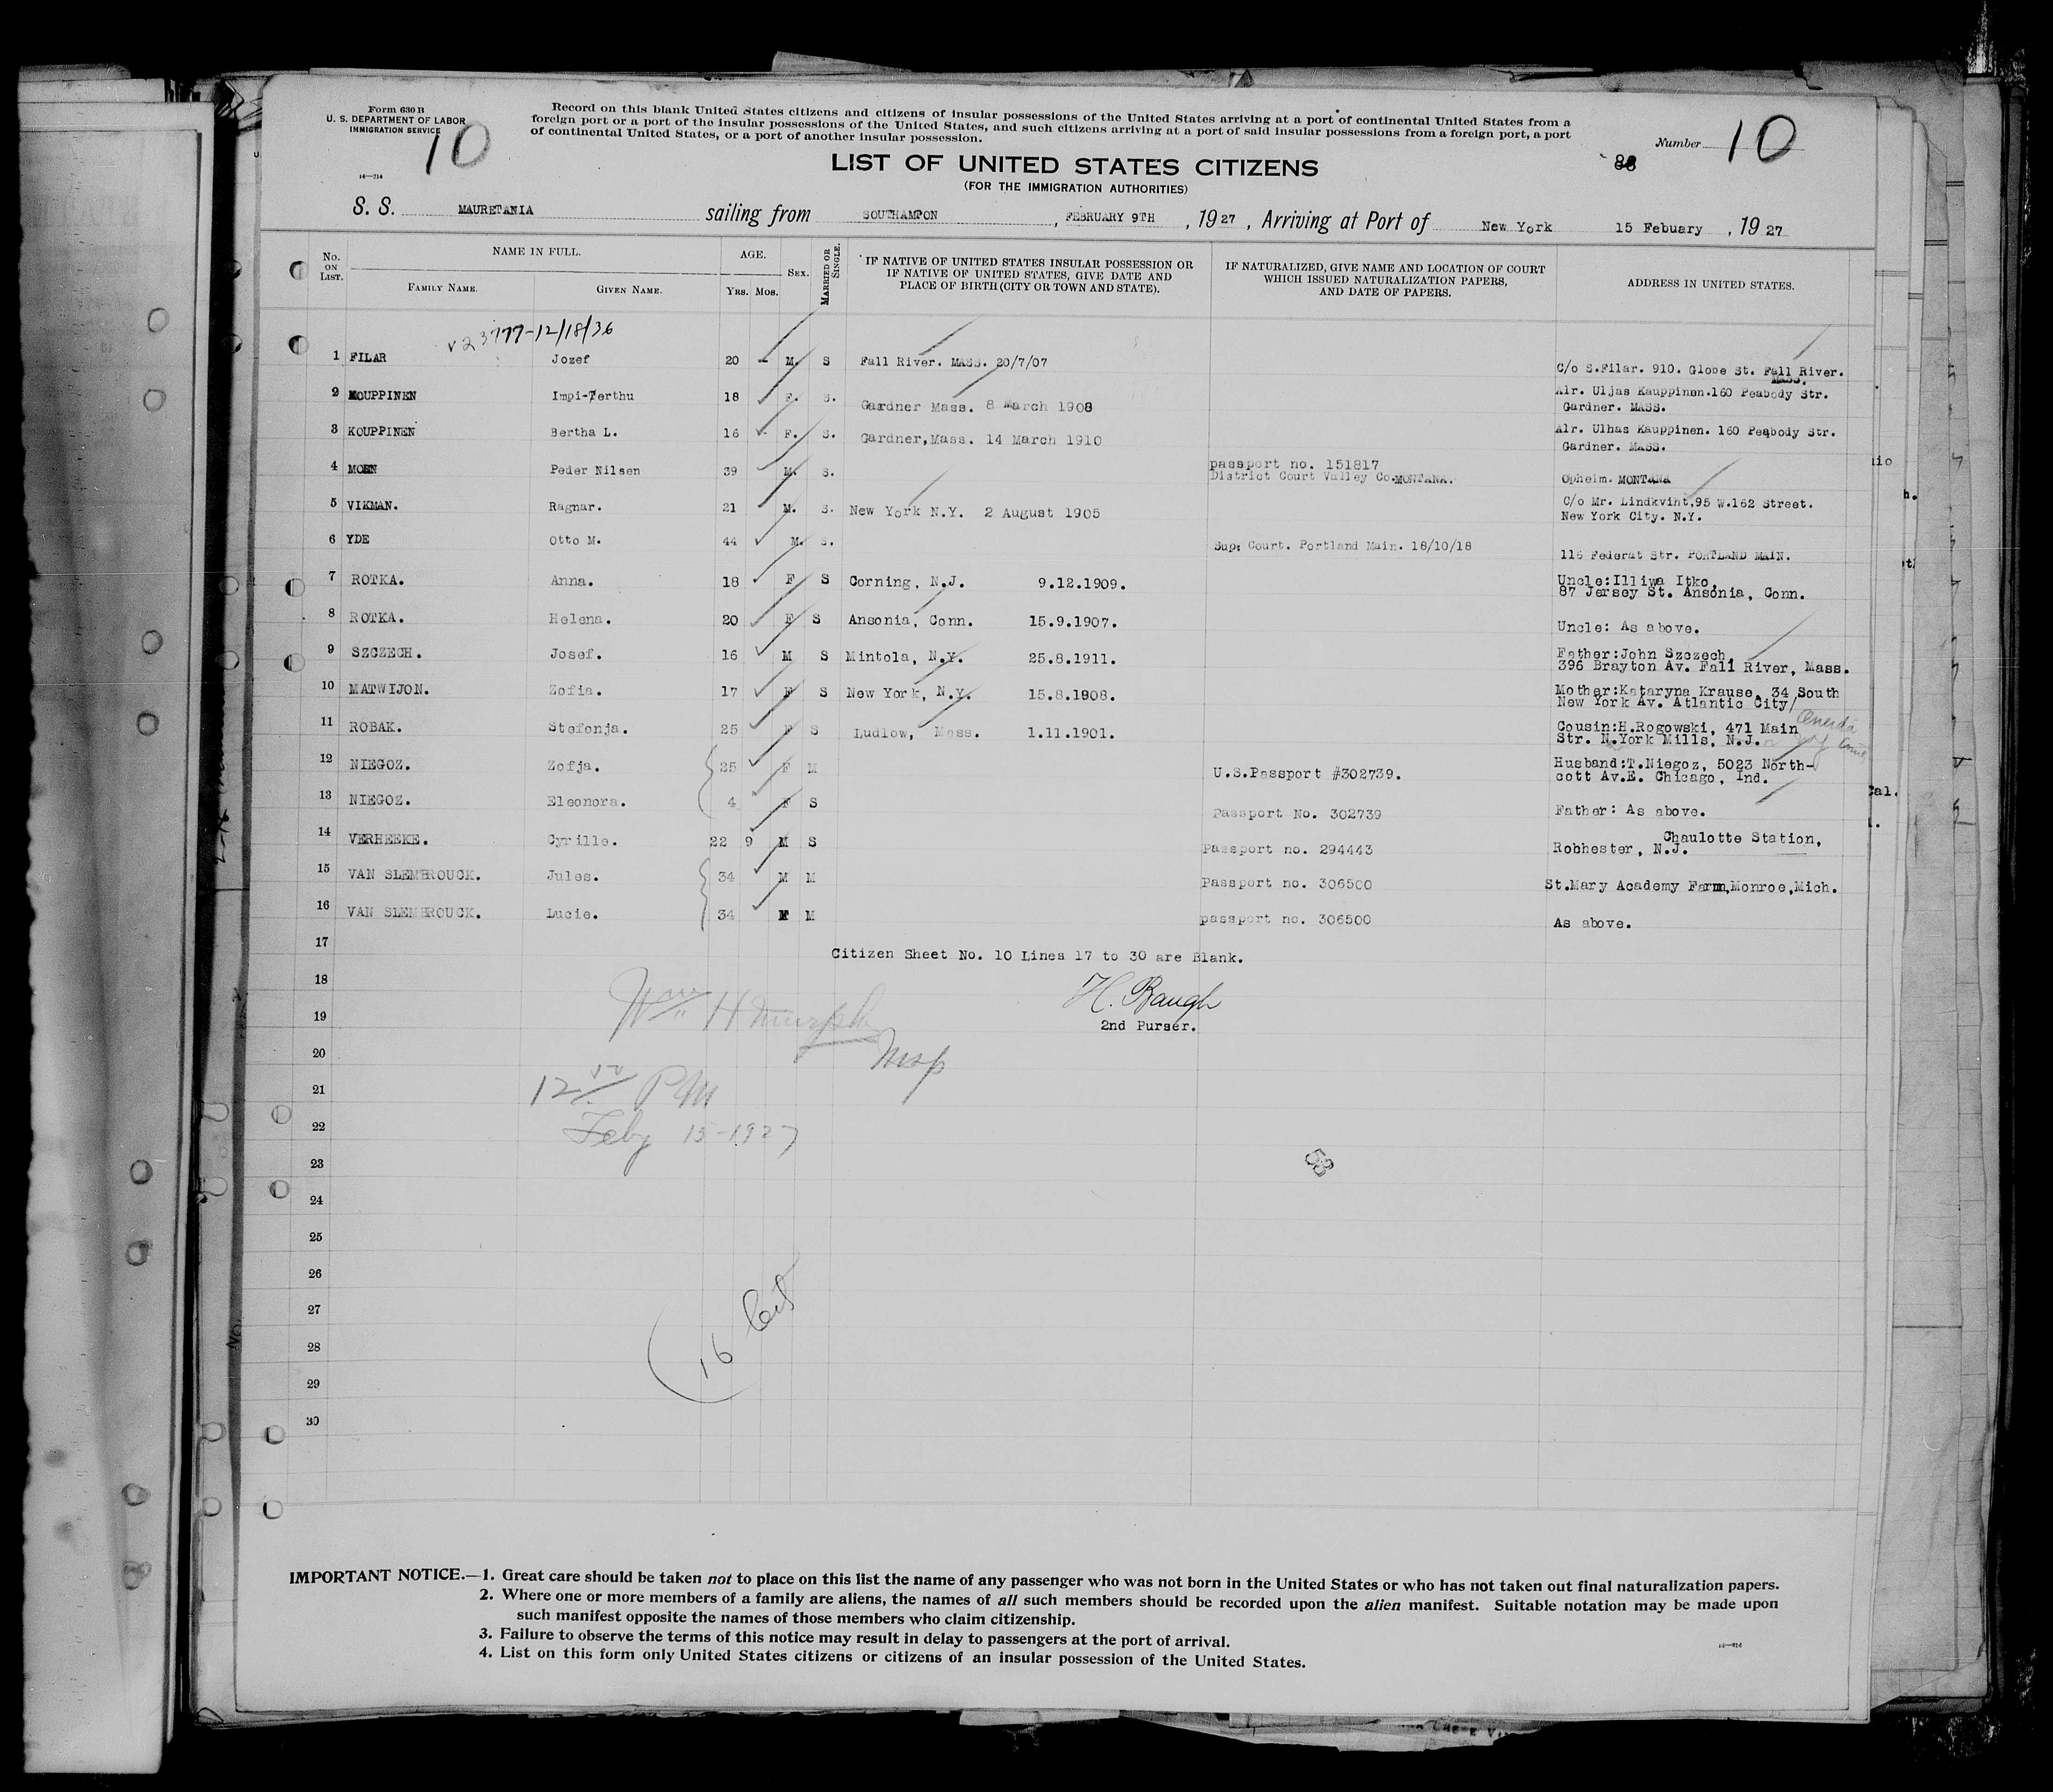 Form 630 B
U. S. DEPARTMENT OF LABOR
IMMIGRATION SERVICE
10
Record on this blank United States citizens and citizens of insular possessions of the United States arriving at a port of continental United States from a
foreign port or a port of the insular possessions of the United States, and such citizens arriving at a port of said insular possessions from a foreign port, a port
of continental United States, or a port of another insular possession.
Number 10
LIST OF UNITED STATES CITIZENS
(FOR THE IMMIGRATION AUTHORITIES)
S. S. MAURETANIA sailing from SOUTHAMPON, FEBRUARY 9TH, 1927, Arriving at Port of New York 15 Febuary, 1927
No. ON LIST. NAME IN FULL. FAMILY NAME. GIVEN NAME. AGE. YRS. MOS. SEX. MARRIED OR SINGLE. IF NATIVE OF UNITED STATES INSULAR POSSESSION OR IF NATIVE OF UNITED STATES, GIVE DATE AND PLACE OF BIRTH (CITY OR TOWN AND STATE). IF NATURALIZED, GIVE NAME AND LOCATION OF COURT WHICH ISSUED NATURALIZATION PAPERS, AND DATE OF PAPERS. ADDRESS IN UNITED STATES.
12/18/36
1 FILAR Jozef 20 - M. S Fall River. MASS. 20/7/07 C/o S.Filar. 910. Globe St. Fall River.
MASS.
2 KOUPPINEN 18 F. S. Gardner Mass. 8 March 1908 Alr. Uljas Kauppinen.160 Peabody Str.
Gardner. MASS.
3 KOUPPINEN Bertha L. 16 - F. S. Gardner,Mass. 14 March 1910 Alr. Ulhas Kauppinen. 160 Peabody Str.
Gardner. MASS.
4 MOEN Peder Nilsen 39 M. S. passport no. 151817
District Court Valley Co.MONTANA. Opheim. MONTANA
5 VIKMAN. Ragnar. 21 M. S. New York N.Y. 2 August 1905 C/o Mr. Lindkviht,95 W.162 Street.
New York City. N.Y.
6 YDE Otto M. 44 M. S. Sup: Court. Portland Main. 18/10/18 116 Federat Str. PORTLAND MAIN.
7 ROTKA. Anna. 18 F S Corning, N.J. 9.12.1909. Uncle:Illiwa Itko,
87 Jersey St. Ansonia, Conn.
8 ROTKA. Helena. 20 F S Ansonia, Conn. 15.9.1907. Uncle: As above.
9 SZCZECH. Josef. 16 M S Mintola, N.Y. 25.8.1911. Father:John Szczech,
396 Brayton Av. Fall River, Mass.
10 MATWIJON. Zofia. 17 F S New York, N.Y. 15.8.1908. Mother:Kataryna Krause, 34 South
New York Av. Atlantic City/
11 ROBAK. Stefonja. 25 F S Ludlow, Mass. 1.11.1901. Cousin:H.Rogowski, 471 Main
Str. N.York Mills, N.J.
12 NIEGOZ. Zofja. 25 F M U.S.Passport #302739. Husband:T.Niegoz, 5023 North-
cott Av.E. Chicago, Ind.
13 NIEGOZ. Eleonora. 4 F S Passport No. 302739 Father: As above.
14 VERHEEKE. Cyrille. 22 9 M S Passport no. 294443 Chaulotte Station,
Robhester, N.J.
15 VAN SLEMBROUCK. Jules. 34 M M Passport no. 306500 St.Mary Academy Farm,Monroe,Mich.
16 VAN SLEMBROUCK. Lucie. 34 F M passport no. 306500 As above.
17
Citizen Sheet No. 10 Lines 17 to 30 are Blank.
18
H. Baugh
19
Wm H Murphy
2nd Purser.
20
21
PM
22
Feby 15-1927
23
53
24
25
26
27
28
16 Cit
29
30
IMPORTANT NOTICE.—1. Great care should be taken not to place on this list the name of any passenger who was not born in the United States or who has not taken out final naturalization papers.
2. Where one or more members of a family are aliens, the names of all such members should be recorded upon the alien manifest. Suitable notation may be made upon
such manifest opposite the names of those members who claim citizenship.
3. Failure to observe the terms of this notice may result in delay to passengers at the port of arrival.
4. List on this form only United States citizens or citizens of an insular possession of the United States.